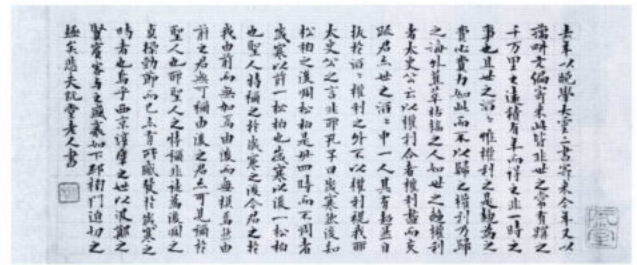 去年以晚學大雲二書寄來今年又以
藕耕文編寄來此皆非世之常有購之
千万里之遠積有年而得之非一時之
事也且世之滔滔惟權利之是趨爲之
費心費力如此而不以歸之權利乃歸
之海外蕉萃枯槁之人如世之趨權利
者太史公云以權利合者權利盡而交
疎君亦世之滔滔中一人其有超然自
拔於滔滔權利之外不以權利視我耶
太史公之言非耶孔子曰歲寒然後知
松栢之後凋松栢是毌四時而不凋者
歲寒以前一松栢也歲寒以後一松栢
也聖人特稱之於歲寒之後今君之於
我由前而無加焉由後而無損焉然由
前之君無可稱由後之君亦可見稱於
聖人也耶聖人之特稱非徒爲後凋之
貞操勁節而已亦有所感發於歲寒之
時者也烏乎西京淳厖之世以汲鄭之
賢賓客與之盛衰如下邳榜門迫切之
極矣悲夫阮堂老人書
阮堂